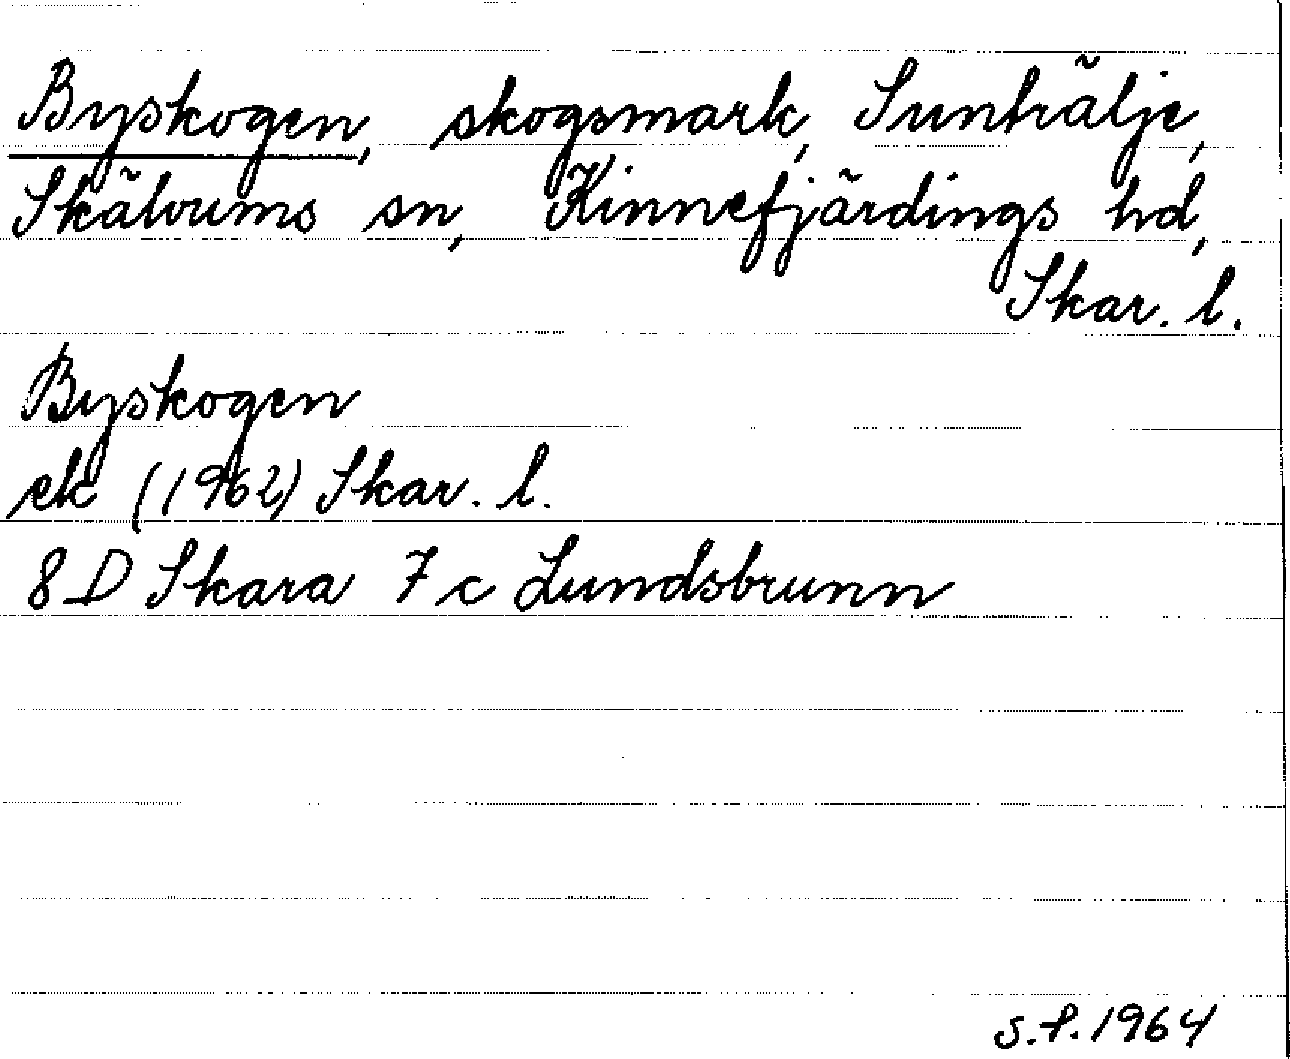 Byskogen, skogsmark, Sunträlje,
Skälvums sn, Kinnefjärdings hd,
Skar. l.
Byskogen
ek (1962) Skar. l.
8 D Skara 7 c Lundsbrunn
S.F. 1964